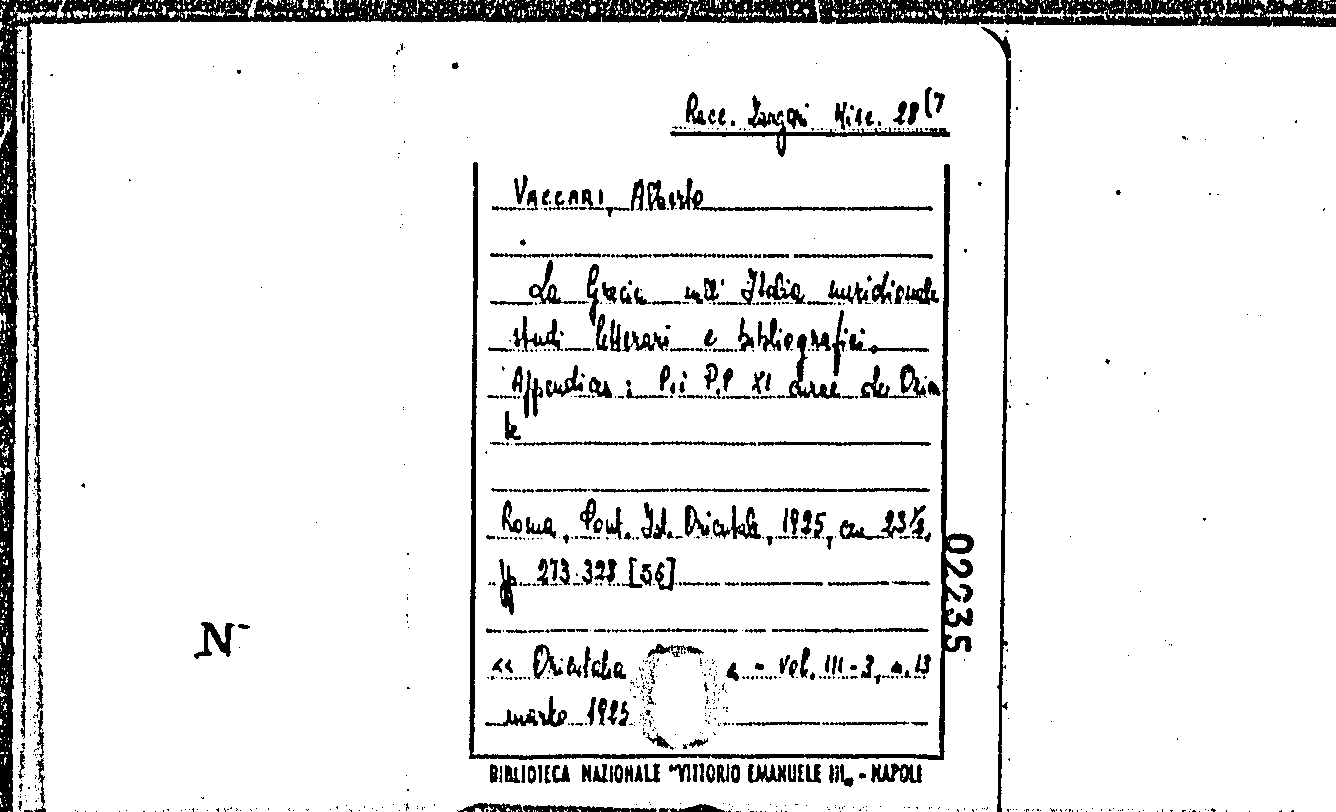 Racc. Zangari Misc. 28 (7
VACCARI, Alberto
La Grecia nell' Italia meridionale
studi letterari e bibliografici.
Appendice : P.i P.P XI
te
Roma, Pont. Ist. Orientale, 1925, cm 23 1/2,
pp 273-328 [56]
02235
N-
<< Orientalia - vol. III-3, n. 13
marzo 1925
BIBLIOTECA NAZIONALE "VITTORIO EMANUELE III„ - NAPOLI